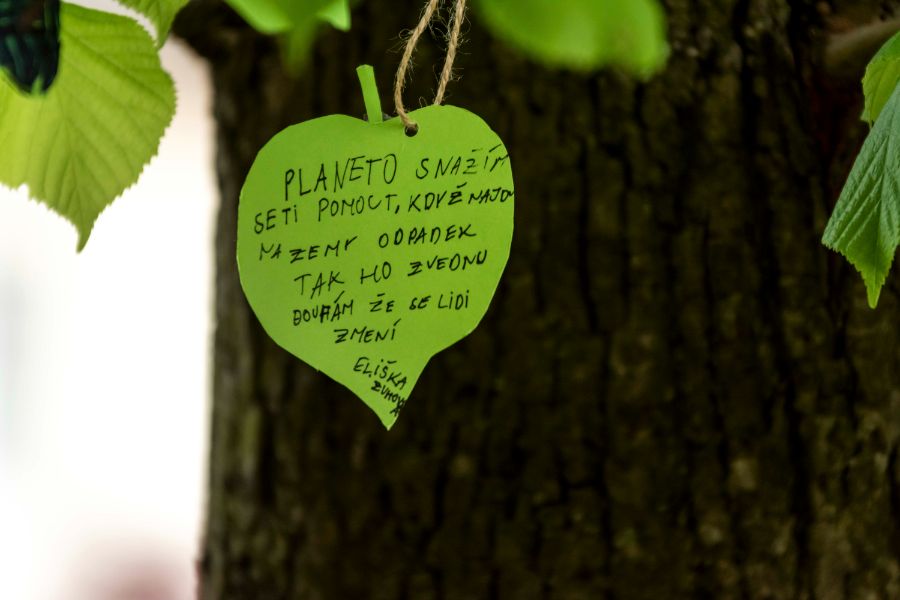 PLANETO SNAŽÍM
SETI POMOCT, KDYŽ NAJDU
NA ZEMY ODPADEK
TAK HO ZVEDNU
DOUFÁM ŽE SE LIDI
ZMENÍ
ELIŠKA